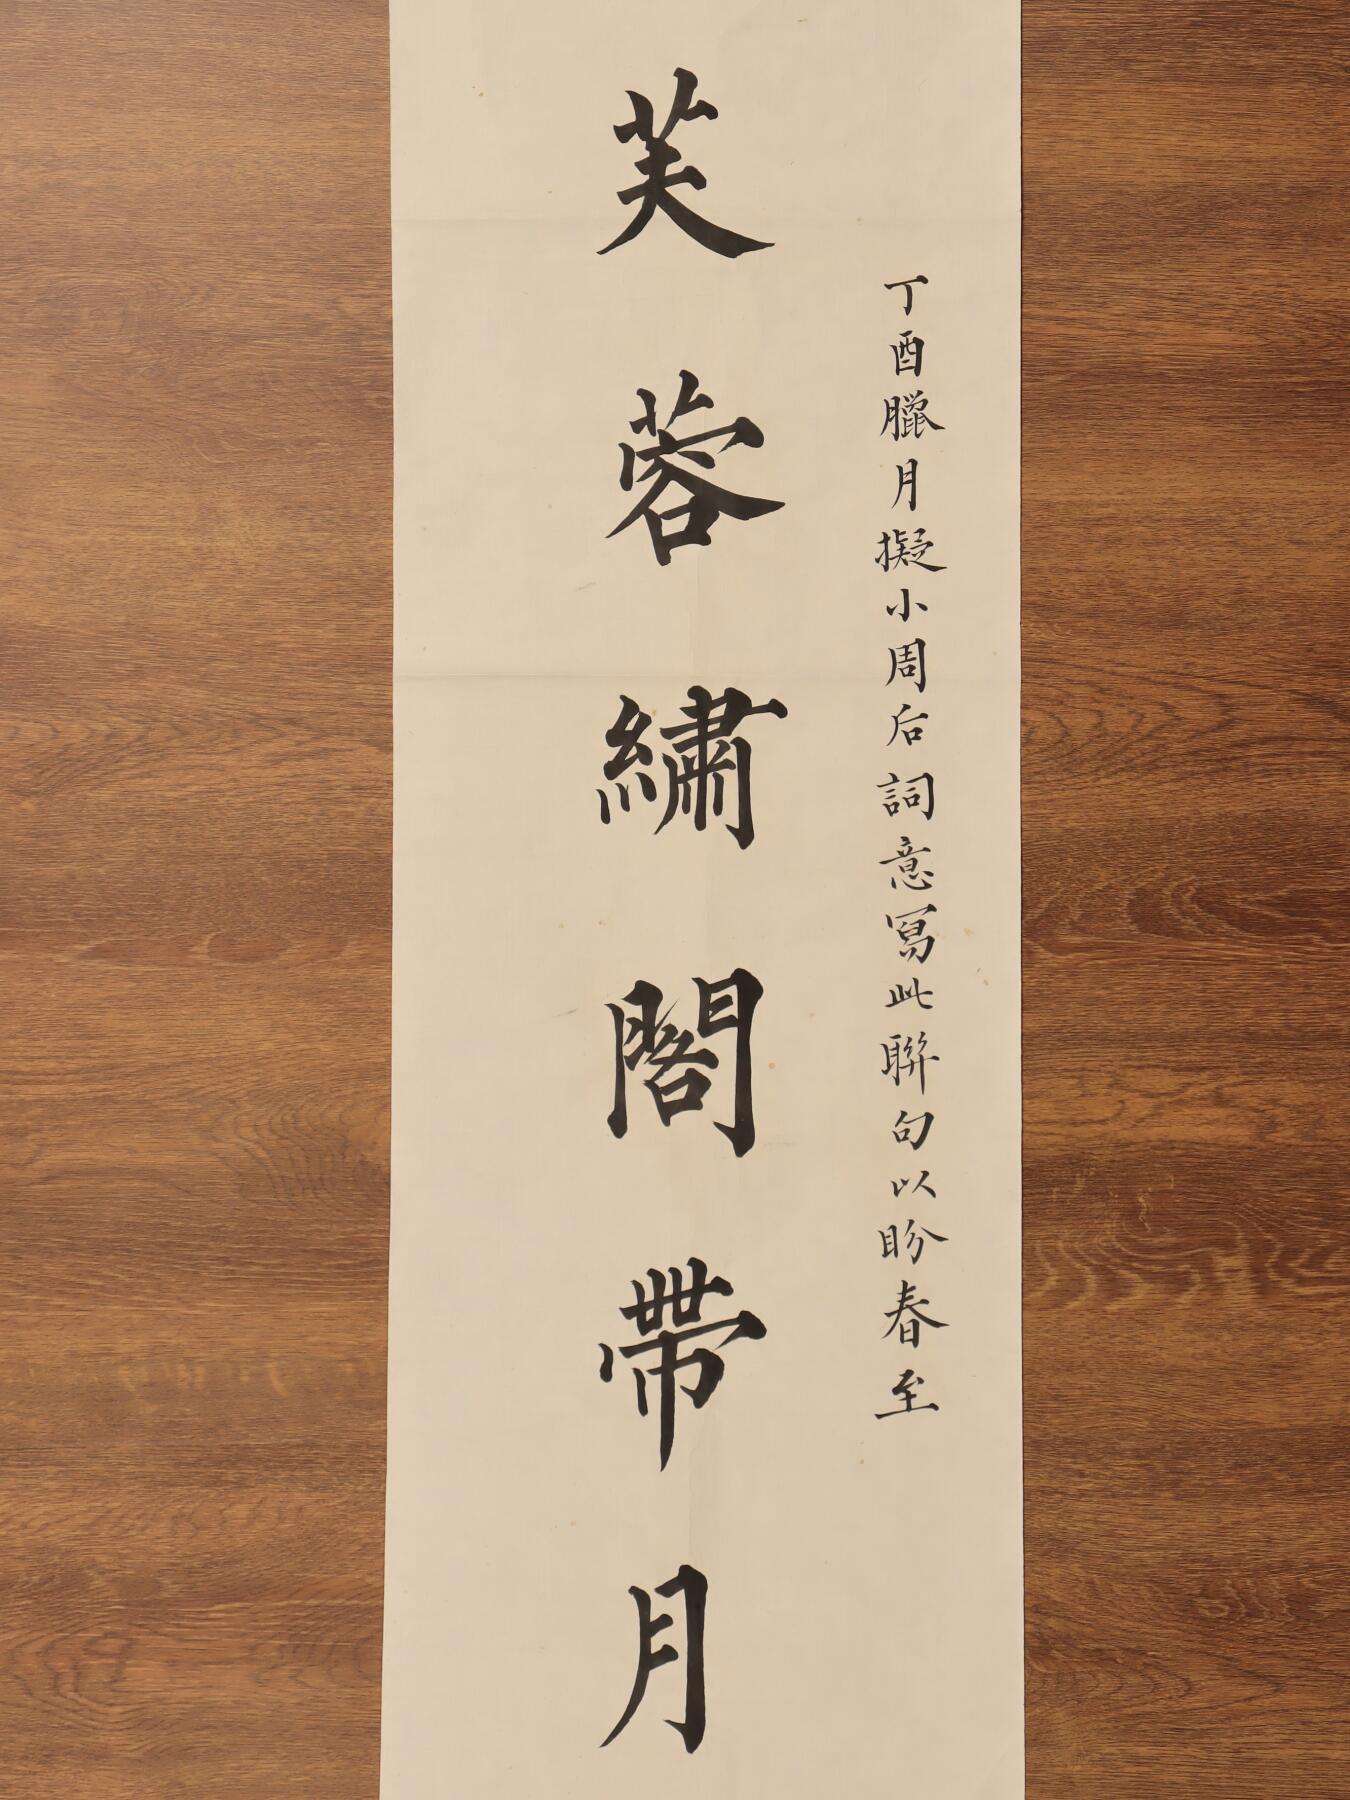 丁酉臘月擬小周后詞意寫此聯句以盼春至
芙蓉繡閣帶月